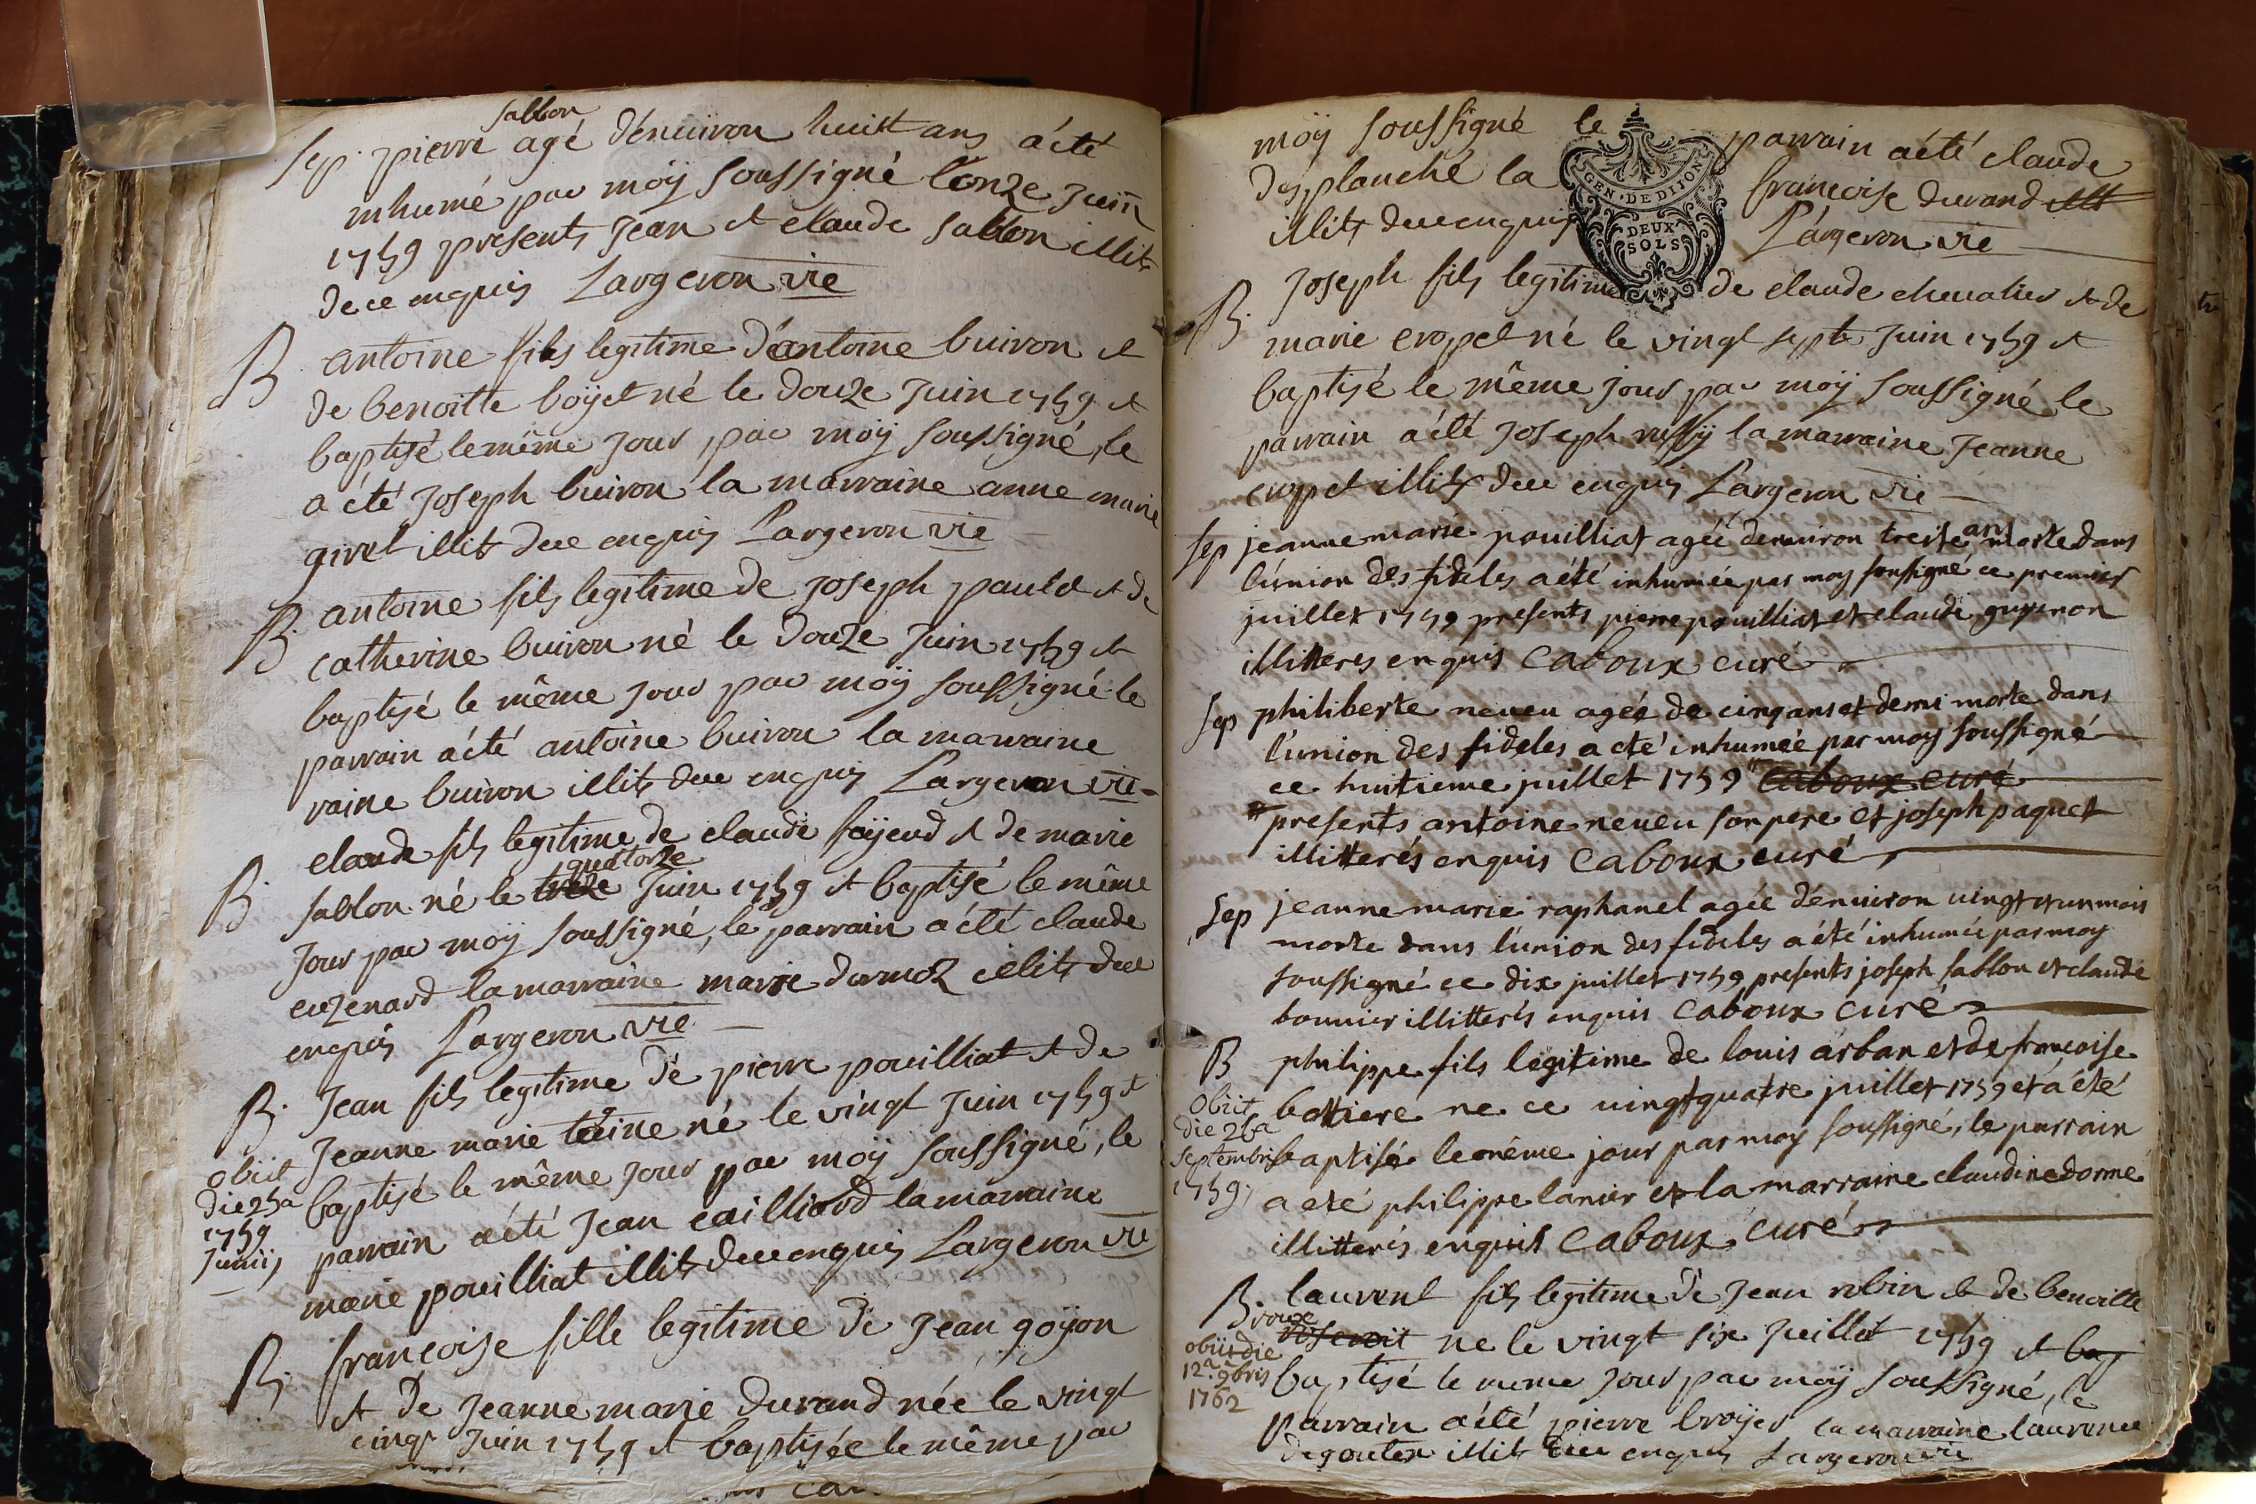 sablon
sep. pierre agé dénuiron huitt ans a été
inhumé par moÿ soussigné l'onze Juin
1759 presents Jean et claude sablon illits
de ce enquis Largeron vie
B. antoine fils legitime d'antoine buiron et
de benoitte boÿet né le douze Juin 1759 et
baptisé le même Jour par moÿ soussigné, le
a été Joseph buiron la marraine anne marie
girel illits dece enquis Largeron vie
B. antoine fils legitime de Joseph paulet et de
catherine buiron né le douze Juin 1759 et
baptisé le même Jour par moÿ soussigné le
parrain a été antoine buiron la marraine
raine buiron illits dece enquis Largeron vie
B. claude fils legitime de claude faÿend et de marie
quatorze
sablon né le treze Juin 1759 et baptisé le même
Jour par moÿ soussigné, le parrain a été claude
cuzenard la marraine marie durmoz illits dece
enquis Largeron vie
B. Jean fils legitime de pierre pouilliat et de
Jeanne marie né le vingt Juin 1759 et
obiit die 25a 1759 Junii
baptisé le même Jour par moÿ soussigné, le
parrain a été Jean cailliard la marraine
marie pouilliat illits dece enquis Largeron vie
B. francoise fille legitime de Jean goÿon
et de Jeanne marie durand née le vingt
cinq Juin 1759 et baptisée le même par
moÿ soussigné le parrain a été claude
desplanché la francoise durand illit
illits dece enquis Largeron vie
GEN. DE DIJON
DEUX
SOLS
B. Joseph fils legitime de claude chevalier et de
marie cropet né le vingt septe Juin 1759 et
baptisé le même Jour par moÿ soussigné le
parrain a été Joseph ruffÿ la marraine Jeanne
cropet illits dece enquis Largeron vie
sep jeanne marie pouilliat agée denuiron treise ans morte dans
l'union des fideles a été inhumée par moy soussigné ce premier
juillet 1759 presents pierre pouilliat et claude guyenon
illitterés enquis Caboux curé
sep philiberte neveu agée de cinq ans et demi morte dans
l'union des fideles a été inhumée par moy soussigné
ce huitieme juillet 1759 caboux curé
presents antoine neveu son pere et joseph paquet
illitterés enquis Caboux curé
sep jeanne marie raphanel agée dénuiron uingt et un mois
morte dans l'union des fideles a été inhumée par moy
soussigné ce dix juillet 1759 presents joseph sablon et claude
bonnier illitterés enquis Caboux curé
B philippe fils légitime de louis arban et de françoise
obiit die 26a septembris 1759
bottiere ne ce uingt quatre juillet 1759 et a été
baptisé le même jour par moy soussigné, le parrain
a eté philippe lanier et la marraine claudine dorme
illitterés enquis Caboux, curé
B. laurent fils legitime de Jean robin et de benoitte
roux
ne le vingt six Juillet 1759 et bap
obiit die 12a 9bris 1762
baptisé le meme Jour par moÿ soussigné, le
parrain a été pierre broÿer la marraine laurence
degoutex illits dece enquis Largeron vie